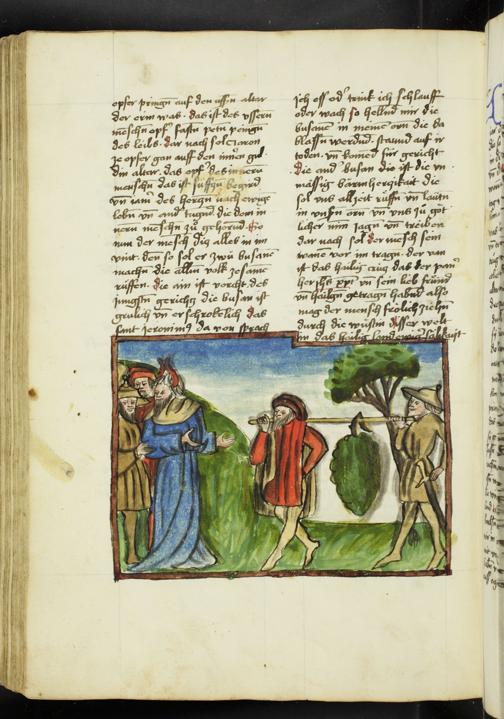 opfer pringn auf den ussn altar
der erin was · das ist des ussern
menschn opf fastn petn peingn
des leibs · dar nach sol
ze opfer gan auff den innen gul
din altar · das opf des innern
menschn das ist begird
vn iam des herczn nach ewige
lebn vn and tugnd die dem in
nern menschn zu gehornd · So
nun der mesch dis alles in im
vint · den so sol er zwu busane
machn die allm volk zesamē
rüssen · die ain ist vorcht des
jungstn gerichcz die busan ist
greulich vn erschrokelich das
sant jeronim9 da von sprach
Ich ess od trink ich schlauff
oder wach so hellnd mir die
busane in mine orn die da
blassn werdnd · staund auf ir
totdn vn komed für gericht
die and busan die ist die vn
mässig barmherczikait die
sol uns allzeit ruffn vn lautn
in unsn orn vn vns zu göt
licher min jagn vn treiben
dar nach sol der mesch sein
wane vor im tragn · der van
ist das hailig crucz das der pan
her ihs xps vn sein lieb frund
vn hailgn getragn habnd also
mag der mensch frolich ziehn
durch die wüstin disser welt
in das hailig land